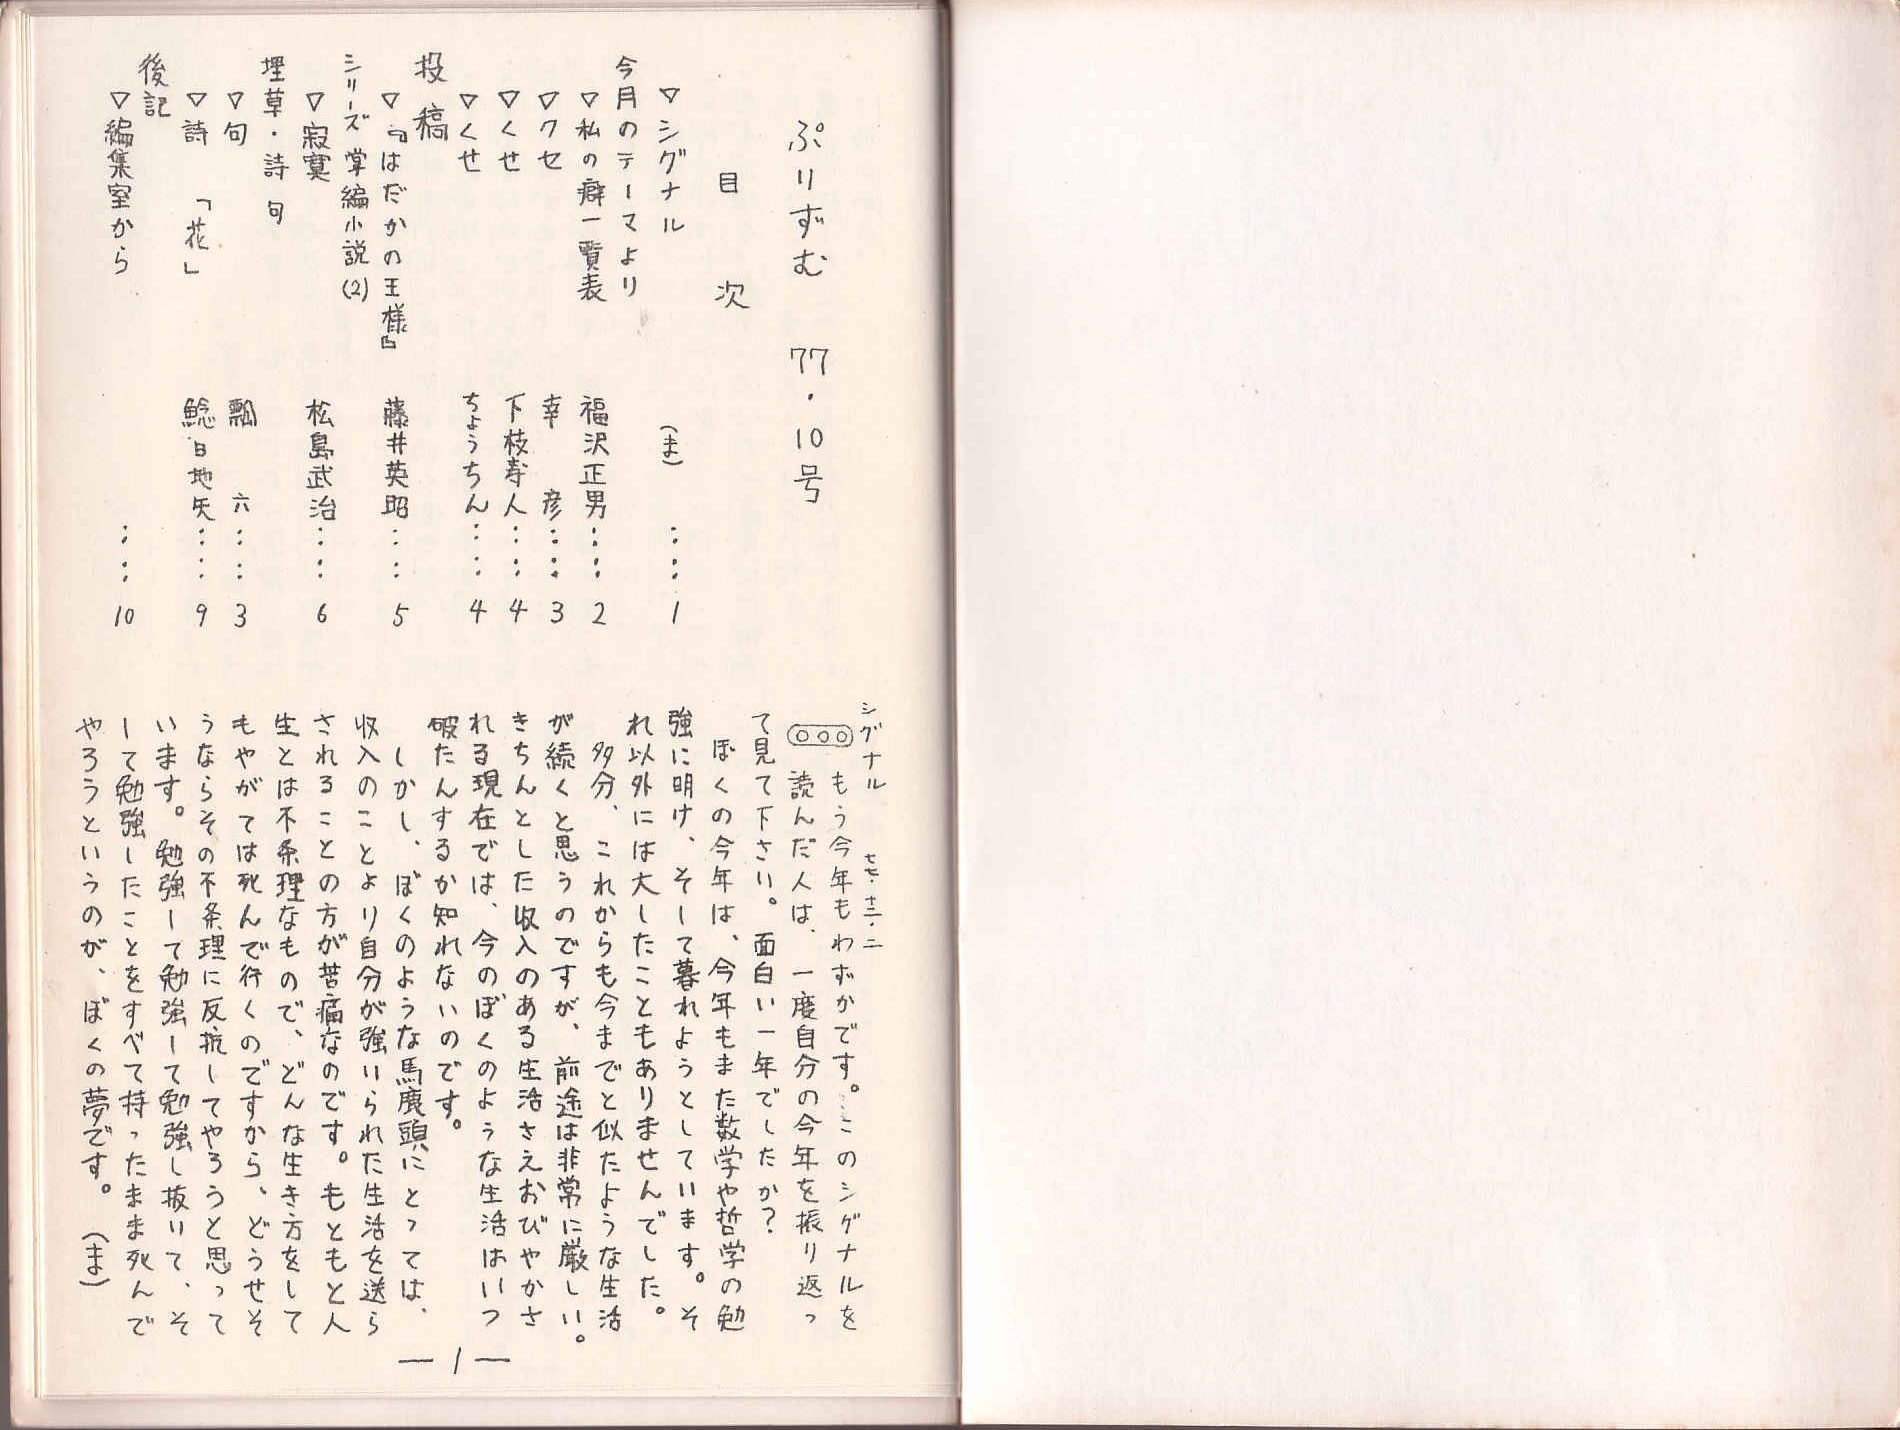 ぷりずむ 77・10号
目次
▽シグナル (ま) ‥‥‥ 1
今月のテーマより
▽私の癖一覧表 福沢正男‥‥‥ 2
▽クセ 幸彦‥‥‥ 3
▽くせ 下枝寿人‥‥‥ 4
▽くせ ちょうちん‥‥‥ 4
投稿
▽『はだかの王様』 藤井英昭‥‥‥ 5
シリーズ掌編小説(2)
▽寂寞 松島武治‥‥‥ 6
埋草・詩句
▽句 瓢六‥‥‥ 3
▽詩 「花」 鯰日地矢‥‥‥ 9
後記
▽編集室から ‥‥‥ 10
シグナル 七七・十二・二
もう今年もわずかです。このシグナルを
読んだ人は、一度自分の今年を振り返っ
て見て下さい。面白い一年でしたか?
ぼくの今年は、今年もまた数学や哲学の勉
強に明け、そして暮れようとしています。そ
れ以外には大したこともありませんでした。
多分、これからも今までと似たような生活
が続くと思うのですが、前途は非常に厳しい。
きちんとした収入のある生活さえおびやかさ
れる現在では、今のぼくのような生活はいつ
破たんするか知れないのです。
しかし、ぼくのような馬鹿頭にとっては、
収入のことより自分が強いられた生活を送ら
されることの方が苦痛なのです。もともと人
生とは不条理なもので、どんな生き方をして
もやがては死んで行くのですから、どうせそ
うならその不条理に反抗してやろうと思って
います。勉強して勉強して勉強し抜いて、そ
して勉強したことをすべて持ったまま死んで
やろうというのが、ぼくの夢です。 (ま)
— 1 —